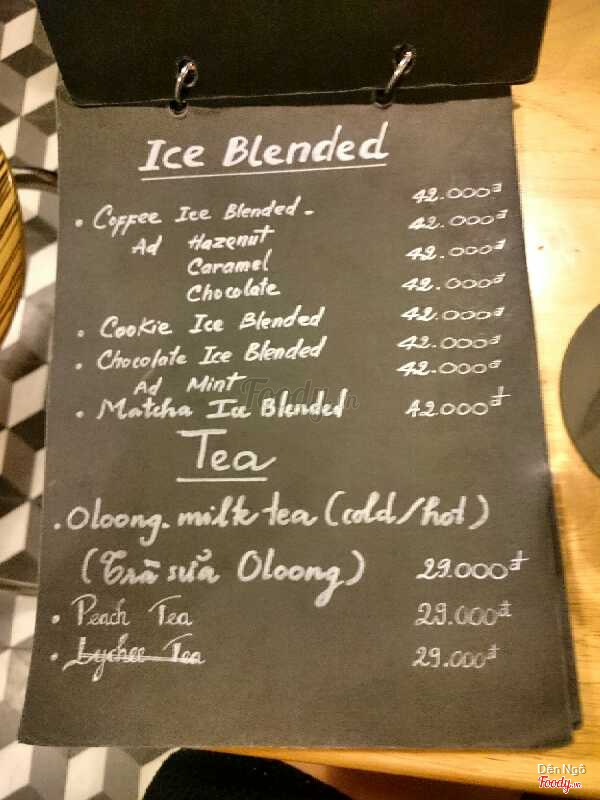 Ice Blended
• Coffee Ice Blended - 42.000đ
Ad Hazenut 42.000đ
Caramel 42.000đ
Chocolate 42.000đ
• Cookie Ice Blended 42.000đ
• Chocolate Ice Blended 42.000đ
Ad Mint 42.000đ
• Matcha Ice Blended 42.000đ
Tea
• Oloong milk tea (cold/hot)
(Trà sữa Oloong) 29.000đ
• Peach Tea 29.000đ
• Lychee Tea 29.000đ
Foody.vn
Dến Ngô
Foody.vn